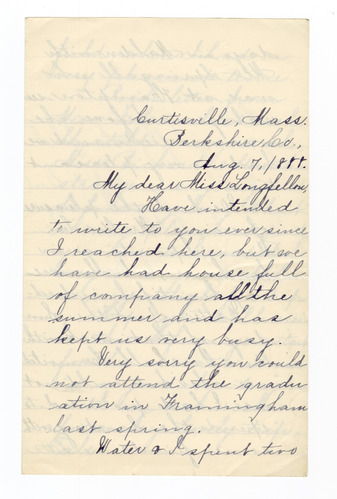 Curtisville, Mass.
Berkshire Co.,
Aug. 7, 1888.
My dear Miss Longfellow,
Have intended
to write to you ever since
I reached here, but we
have had house full
of company all the
summer and has
kept us very busy.
Very sorry you could
not attend the gradu
ation in Framingham
last spring.
Water & I spent two